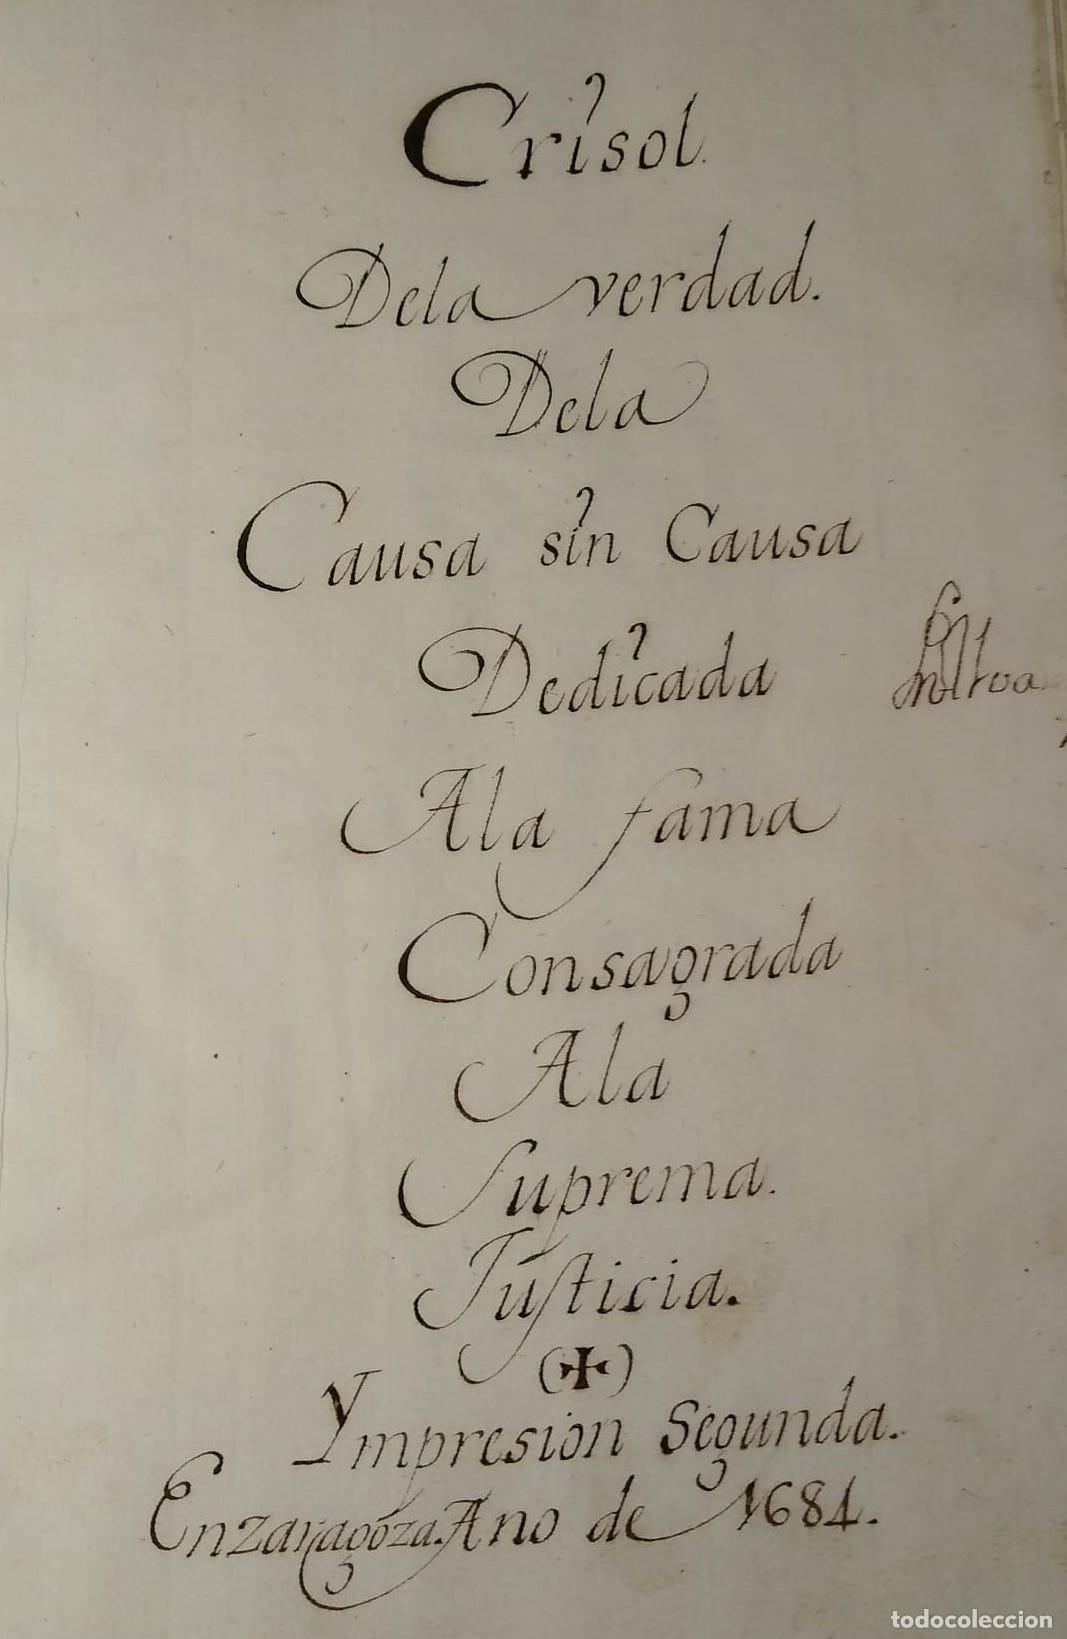 Crisol.
Dela verdad.
Dela
Causa sin Causa
Dedicada
Ala fama
Consagrada
Ala
Suprema.
Justicia.
(✠)
Ympresion Segunda.
Enzaragoza. Ano de 1684.
todocoleccion